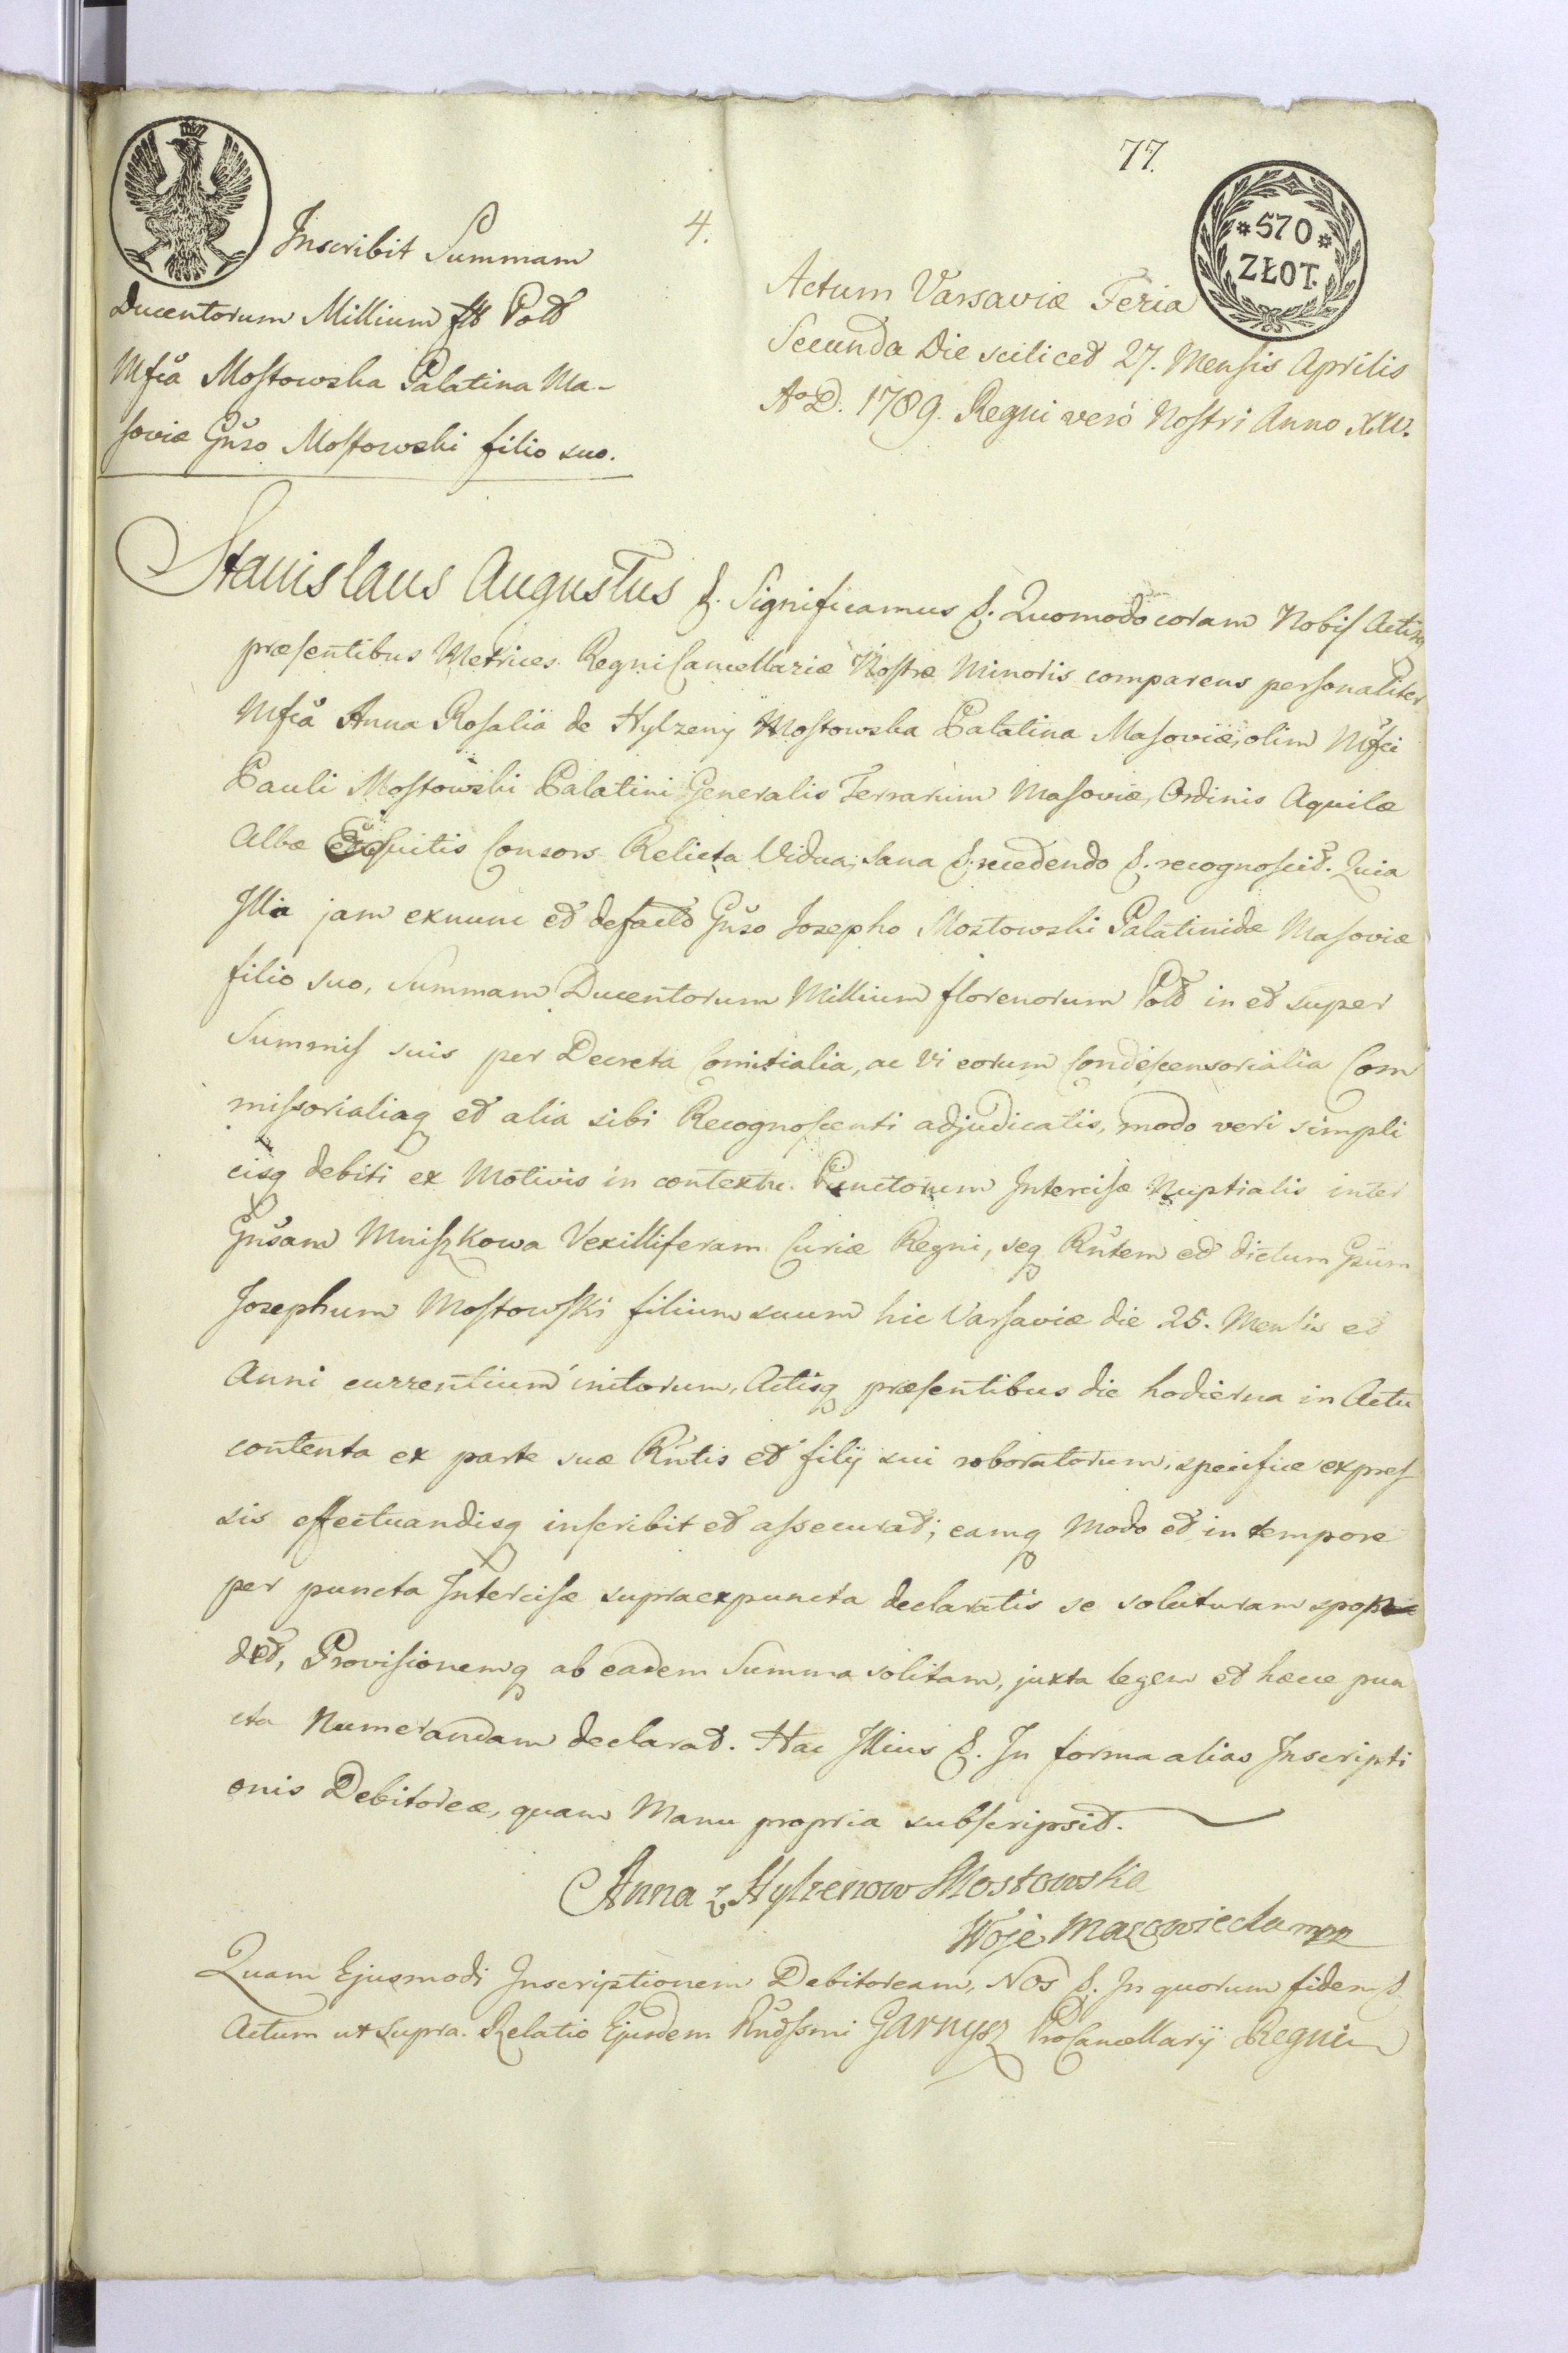 77.
4.
* 570 *
ZŁOT.
Inscribit Summam
Ducentorum Millium fl Pol
Mfca Mostowska Palatina Ma-
soviæ Gnso Mostowski filio suo.
Actum Varsaviæ Feria
Secunda Die scilicet 27. Mensis Aprilis
Ao D. 1789. Regni veró Nostri Anno XXV.
Stanislaus Augustus &. Significamus &. Quomodo coram Nobis Actisq
præsentibus Metrices Regni Cancellariæ Nostræ Minoris comparens personaliter
Mfca Anna Rosalia de Hylzeny Mostowska Palatina Masoviæ, olim Mfci
Pauli Mostowski Palatini Generalis Terrarum Masoviæ, Ordinis Aquilæ
Albæ Equitis Consors Relicta Vidua, sana &. recedendo &. recognoscit. Quia
Illa jam exnunc et defacto Gnso Josepho Mostowski Palatinidæ Masoviæ
filio suo, Summam Ducentorum Millium florenorum Pol in et super
Summis suis per Decreta Comitialia, ac Vi eorum Condescensorialia Com
missorialiaq et alia sibi Recognoscenti adjudicatis, modo veri simpli
cisq debiti ex Motivis in contextu Punctorum Intercisæ Nuptialis inter
Gnsam Mniszkowa Vexilliferam Curiæ Regni, seq Rntem et dictum Gsum
Josephum Mostowski filium suum hic Varsaviæ die 25. Mensis et
Anni currentium initorum, Actisq præsentibus die hodierna in Actu
contenta ex parte suæ Rntis et filij sui roboratorum, specifice expres
sis effectuandisq inscribit et assecurat; eamq Modo et in tempore
per puncta Intercisæ supraexpuncta declaratis se soluturam spopon
det, Provisionemq ab eadem Summa solitam, juxta legem et hæcce pun
cta Numerandam declarat. Hac Illius &. In forma alias Inscripti
onis Debitoreæ, quam Manu propria subscripsit.
Anna z Hylzenow Mostowska
Woje Mazowiecka mpp
Quam Ejusmodi Inscriptionem Debitoream, Nos &. In quorum fidem &.
Actum ut supra. Relatio Ejusdem Rndssmi Garnysz ProCancellarij Regni